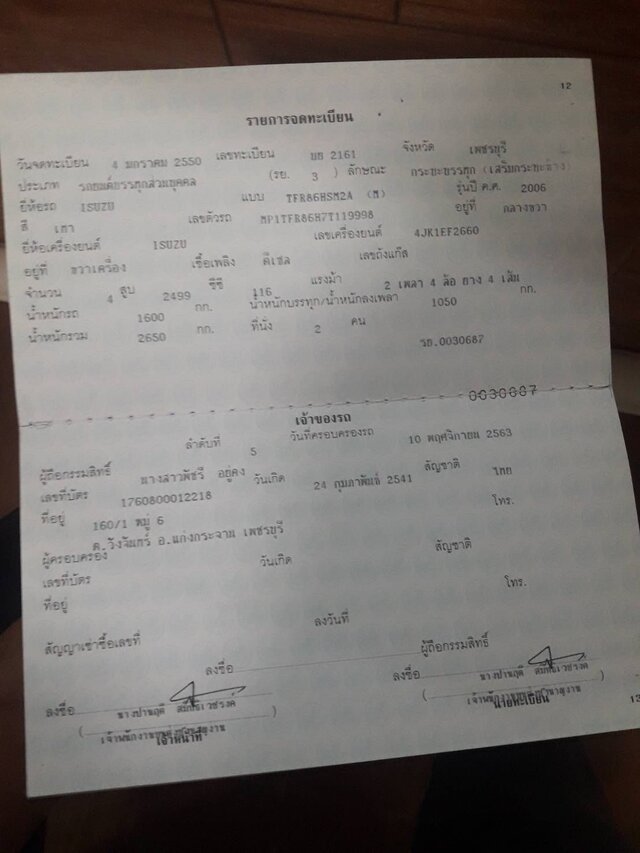 12
รายการจดทะเบียน
วันจดทะเบียน 4 มกราคม 2550 เลขทะเบียน บบ 2161 จังหวัด เพชรบุรี
ประเภท รถยนต์บรรทุกส่วนบุคคล (รย. 3 ) ลักษณะ กระบะบรรทุก (เสริมกระบะข้าง)
ยี่ห้อรถ ISUZU แบบ TFR86HSM2A (M) รุ่นปี ค.ศ. 2006
สี เทา เลขตัวรถ MP1TFR86H7T119998 อยู่ที่ กลางขวา
ยี่ห้อเครื่องยนต์ ISUZU เลขเครื่องยนต์ 4JK1EF2660
อยู่ที่ ขวาเครื่อง เชื้อเพลิง ดีเซล เลขถังแก๊ส
จำนวน 4 สูบ 2499 ซีซี 116 แรงม้า 2 เพลา 4 ล้อ ยาง 4 เส้น
น้ำหนักรถ 1600 กก. น้ำหนักบรรทุก/น้ำหนักลงเพลา 1050 กก.
น้ำหนักรวม 2650 กก. ที่นั่ง 2 คน
รถ.0030687
0030687
เจ้าของรถ
ลำดับที่ 5 วันที่ครอบครองรถ 10 พฤศจิกายน 2563
ผู้ถือกรรมสิทธิ์ นางสาวพัชรี อยู่คง วันเกิด 24 กุมภาพันธ์ 2541 สัญชาติ ไทย
เลขที่บัตร 1760800012218
ที่อยู่ 160/1 หมู่ 6 โทร.
ต.วังจันทร์ อ.แก่งกระจาน เพชรบุรี
ผู้ครอบครอง วันเกิด สัญชาติ
เลขที่บัตร
ที่อยู่ โทร.
สัญญาเช่าซื้อเลขที่ ลงวันที่
ลงชื่อ ผู้ถือกรรมสิทธิ์
ลงชื่อ ลงชื่อ
เจ้าหน้าที่ นายทะเบียน